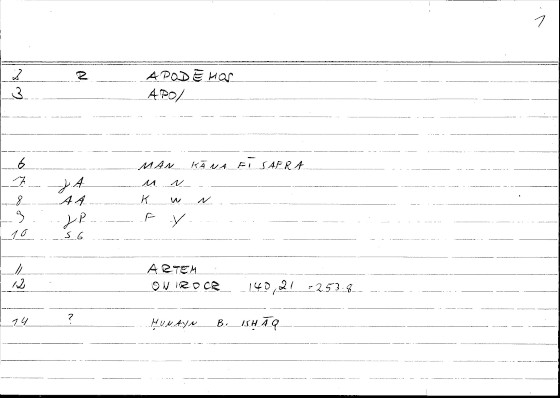 1
2 R APODĒMOS
3 APO/
6 MAN KĀNA FĪ SAFRA
7 JA M N
8 AA K W N
9 JP F Y
10 SG
11 ARTEM
12 ONIROCR 140,21 = 253.8
14 ? ḤUNAYN B. ISḤĀQ